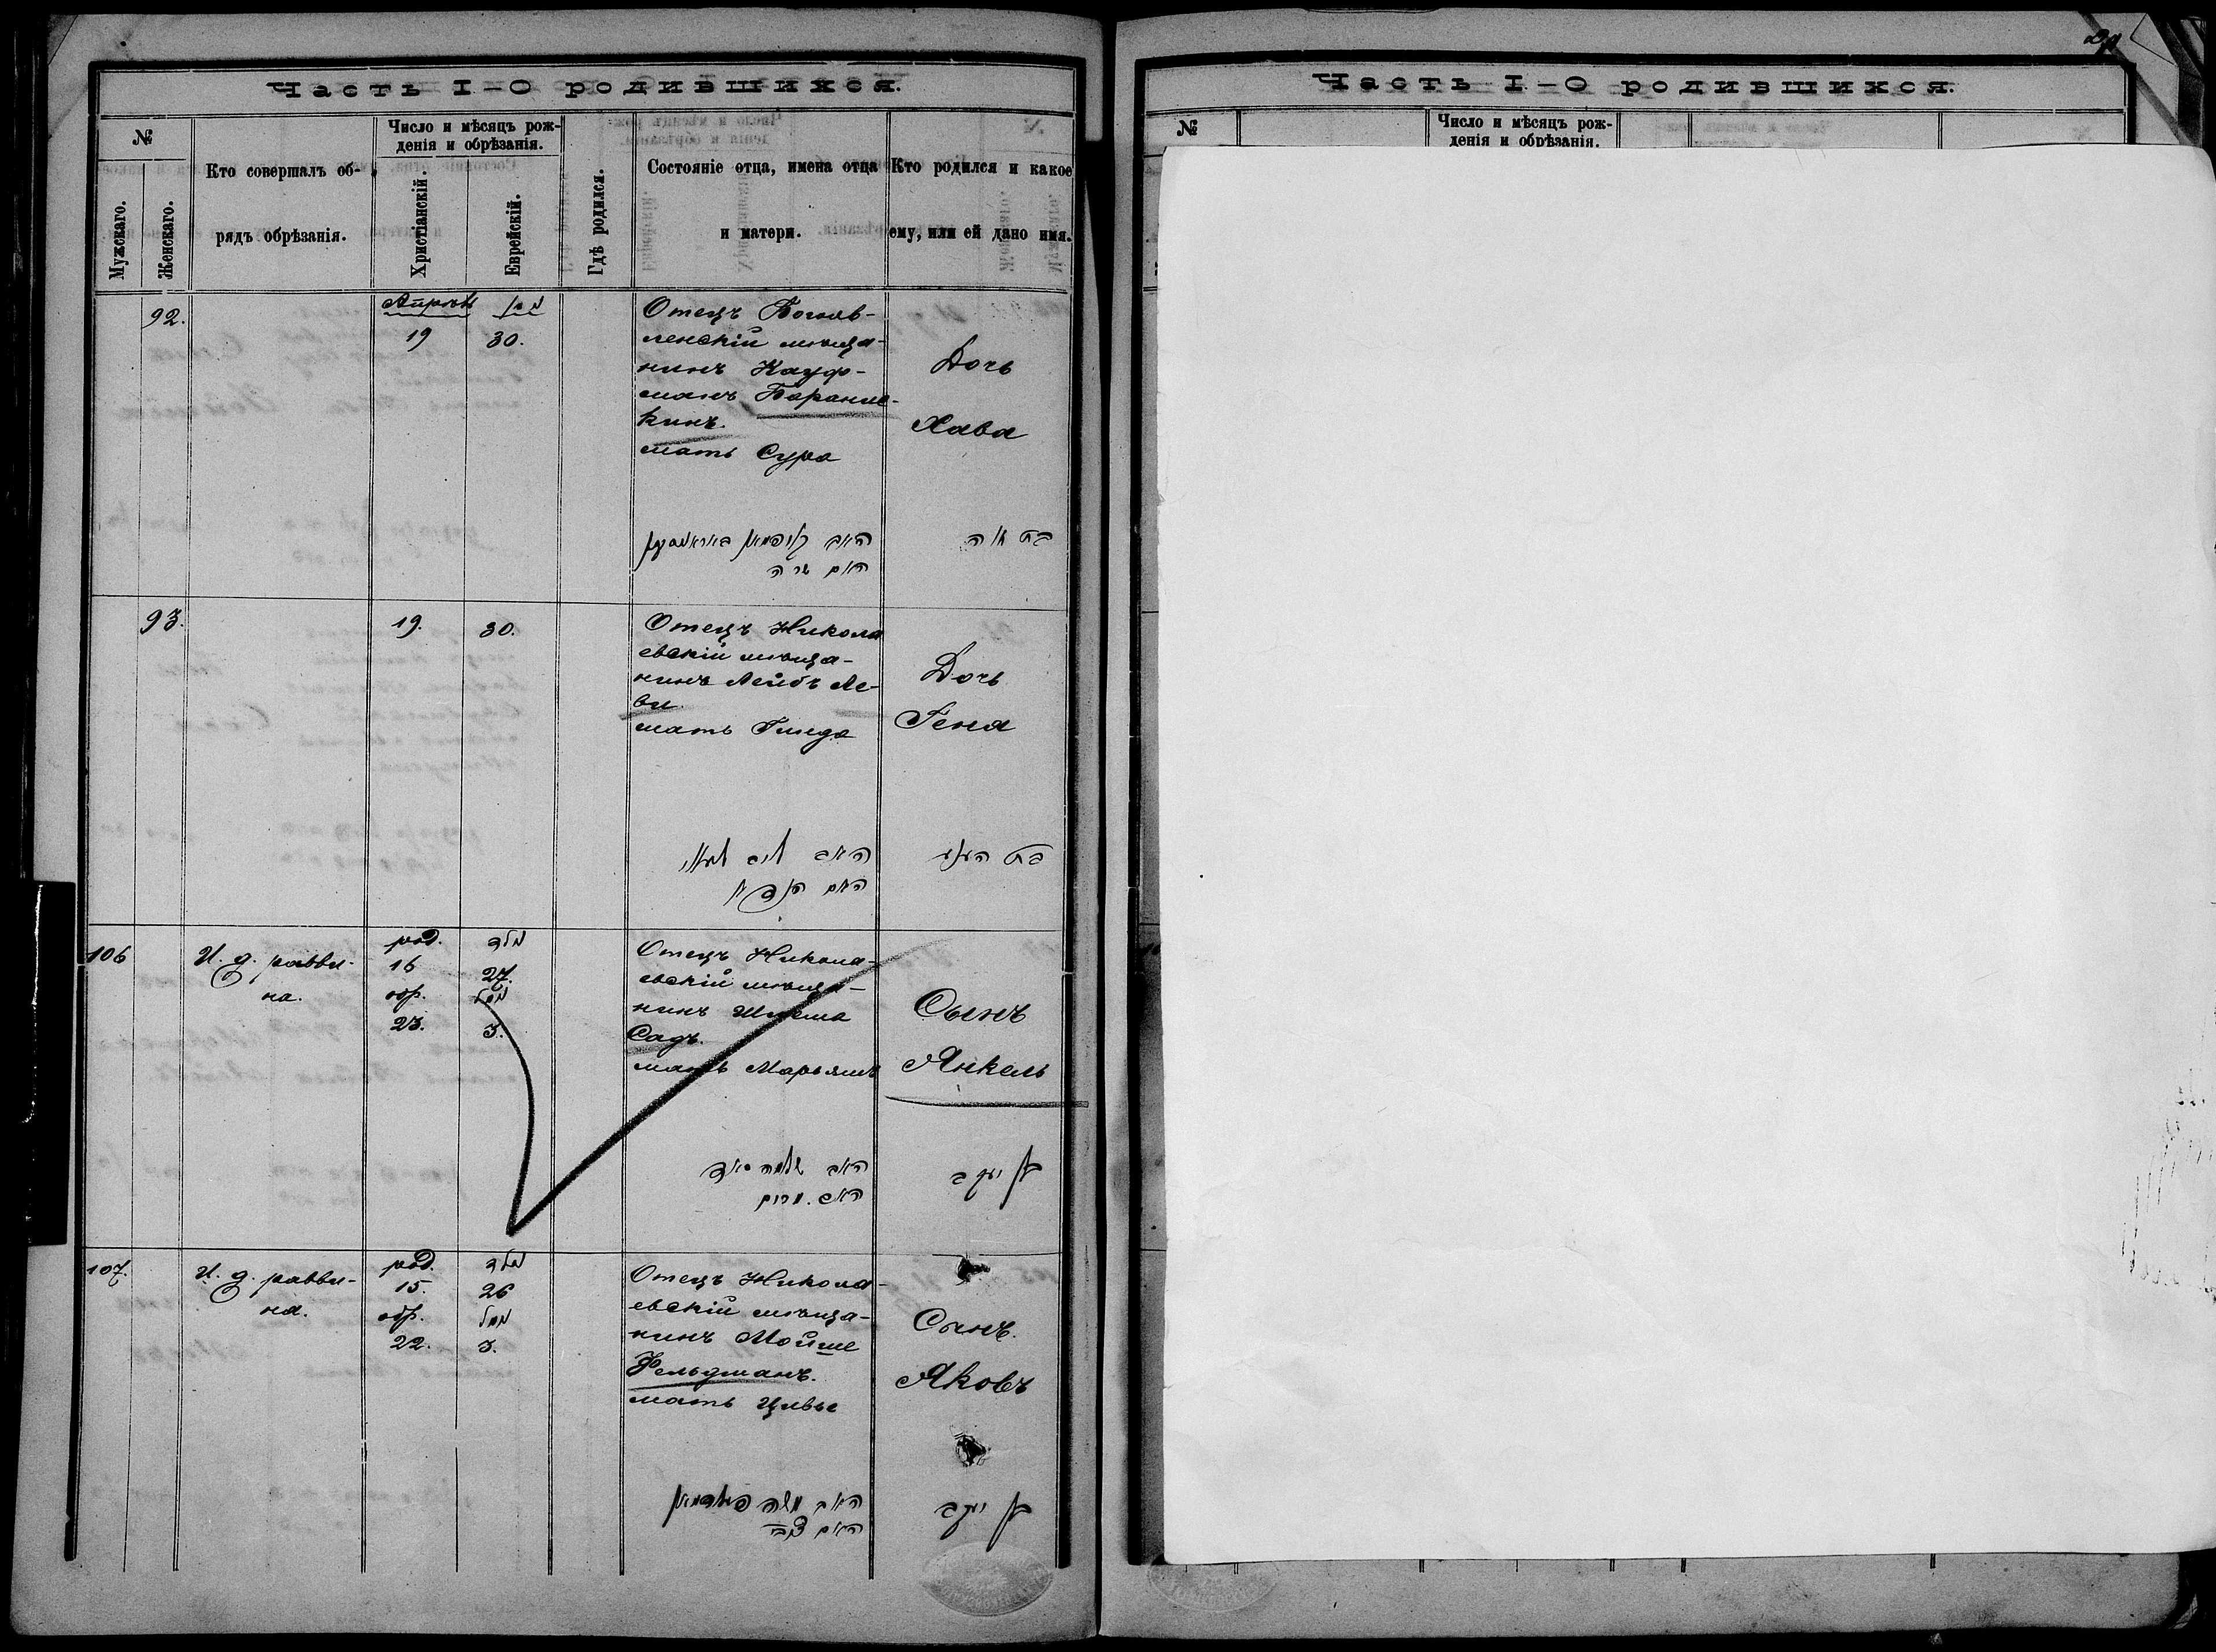 Часть I–О родившихся.
№
Мужскаго.
Женскаго.
Кто совершалъ об-
рядъ обрѣзанія.
Число и мѣсяцъ рож-
денія и обрѣзанія.
Христіанскій.
Еврейскій.
Гдѣ родился.
Состояніе отца, имена отца
и матери.
Кто родился и какое
ему, или ей дано имя.
92.
Апрѣль
19
30.
Отецъ Богояв-
ленскій мѣща-
нинъ Кауф-
манъ
кинъ.
мать Сура
Дочь
Хава
האב קויפמאן
האם שרה
בת חוה
93.
19.
30.
Отецъ Никола
евскій мѣща-
нинъ Лейбъ Ле-
ви.
мать Гинда
Дочь
Геня
האב ליב
האם
בת העניע
106
И. д. равви-
на.
род.
16
обр.
23.
נולד
27.
נמול
3.
Отецъ Никола-
евскій мѣща-
нинъ Шлема
Садъ.
мать Марьямъ
Сынъ
Янкель
האב שלמה סאד
האם מרים
בן יעקב
107.
И. д. равви-
на.
род.
15.
обр.
22.
נולד
26
נמול
3.
Отецъ Никола-
евскій мѣща-
нинъ Мойше
Фельдманъ.
мать Цивье
Сынъ.
Яковъ
האב משה פעלדמאן
האם צביה
בן יעקב
Часть I–О родившихся.
№
Число и мѣсяцъ рож-
денія и обрѣзанія.